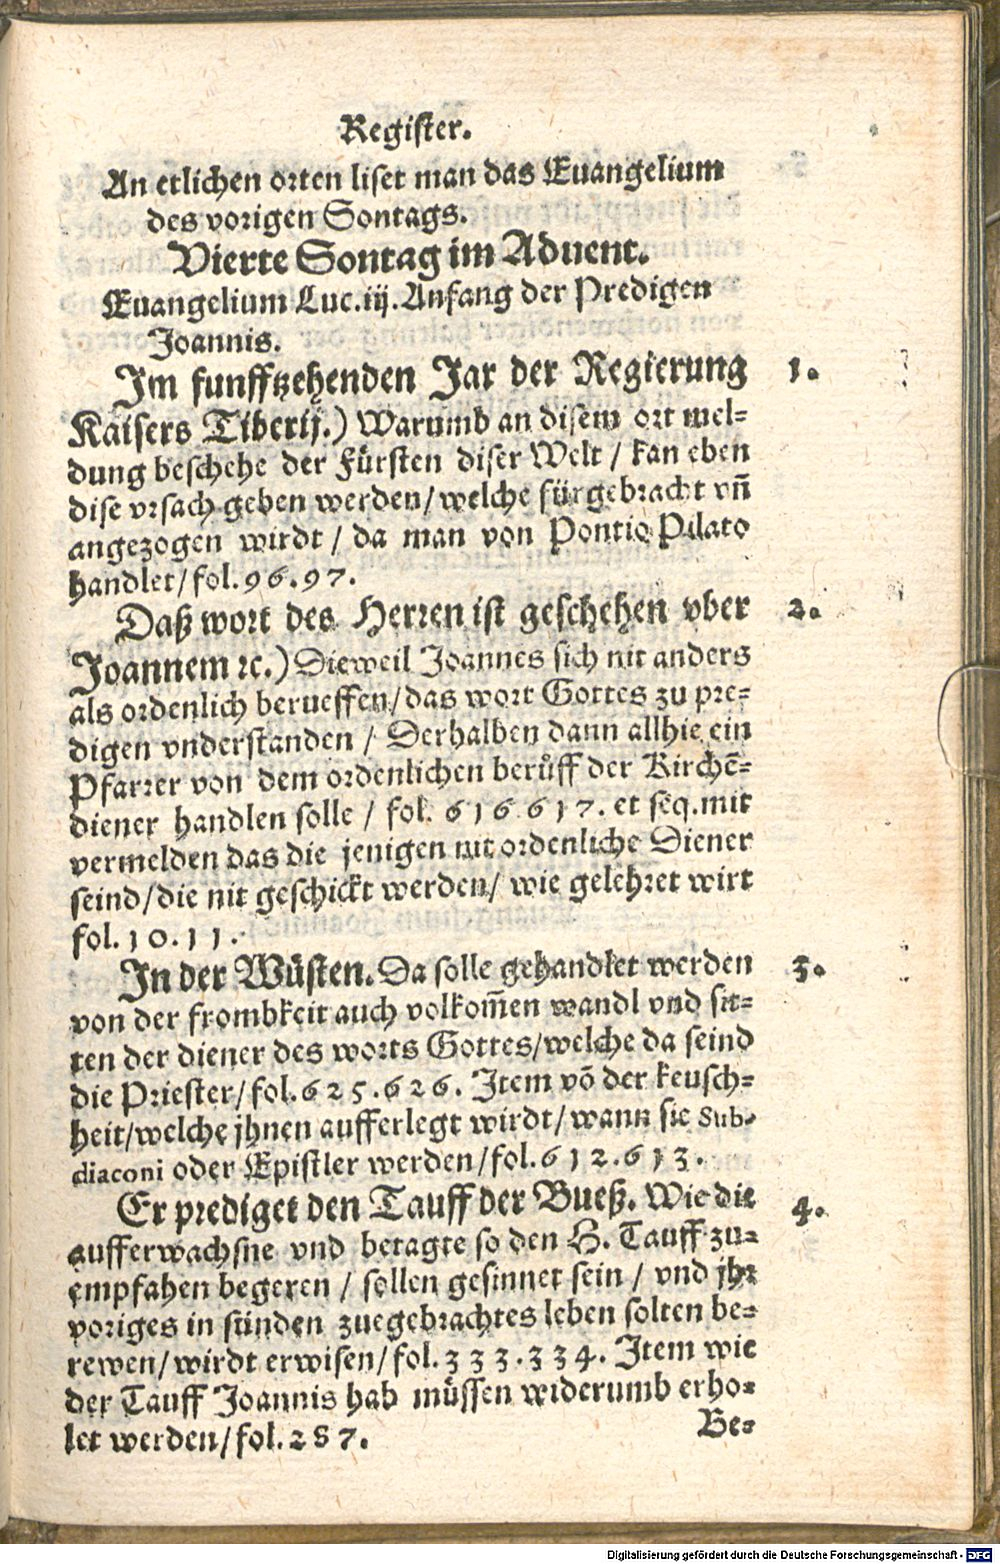 Register.
An etlichen orten liset man das Euangelium
des vorigen Sontags.
Vierte Sontag im Aduent.
Euangelium Luc.iij. Anfang der Predigen
Joannis.
Im funfftzehenden Jar der Regierung 1.
Kaisers Tiberij.) Warumb an disem ort mel-
dung beschehe der Fürsten diser Welt / kan eben
dise vrsach geben werden/welche fürgebracht vñ
angezogen wirdt / da man von Pontio Pilato
handlet/fol.96.97.
Daß wort des Herren ist geschehen vber 2.
Joannem ꝛc.) Dieweil Joannes sich nit anders
als ordenlich berueffen/das wort Gottes zu pre-
digen vnderstanden / Derhalben dann allhie ein
Pfarrer von dem ordenlichen berůff der Kirchẽ-
diener handlen solle / fol. 616 617. et seq.mit
vermelden das die jenigen nit ordenliche Diener
seind/die nit geschickt werden/ wie gelehret wirt
fol.10.11.
In der Wüsten. Da solle gehandlet werden 3.
von der frombkeit auch volkom̃en wandl vnd sit-
ten der diener des worts Gottes/welche da seind
die Priester/fol.625.626. Item võ der keusch-
heit/welche jhnen aufferlegt wirdt/wann sie Sub-
diaconi oder Epistler werden/fol.612.613.
Er prediget den Tauff der Bueß. Wie die 4.
aufferwachsne vnd betagte so den H. Tauff zu-
empfahen begeren / sollen gesinnet sein / vnd jhr
voriges in sünden zuegebrachtes leben solten be-
rewen/wirdt erwisen/fol.333.334. Item wie
der Tauff Joannis hab müssen widerumb erho-
let werden/fol.287.
Be-
Digitalisierung gefördert durch die Deutsche Forschungsgemeinschaft - DFG